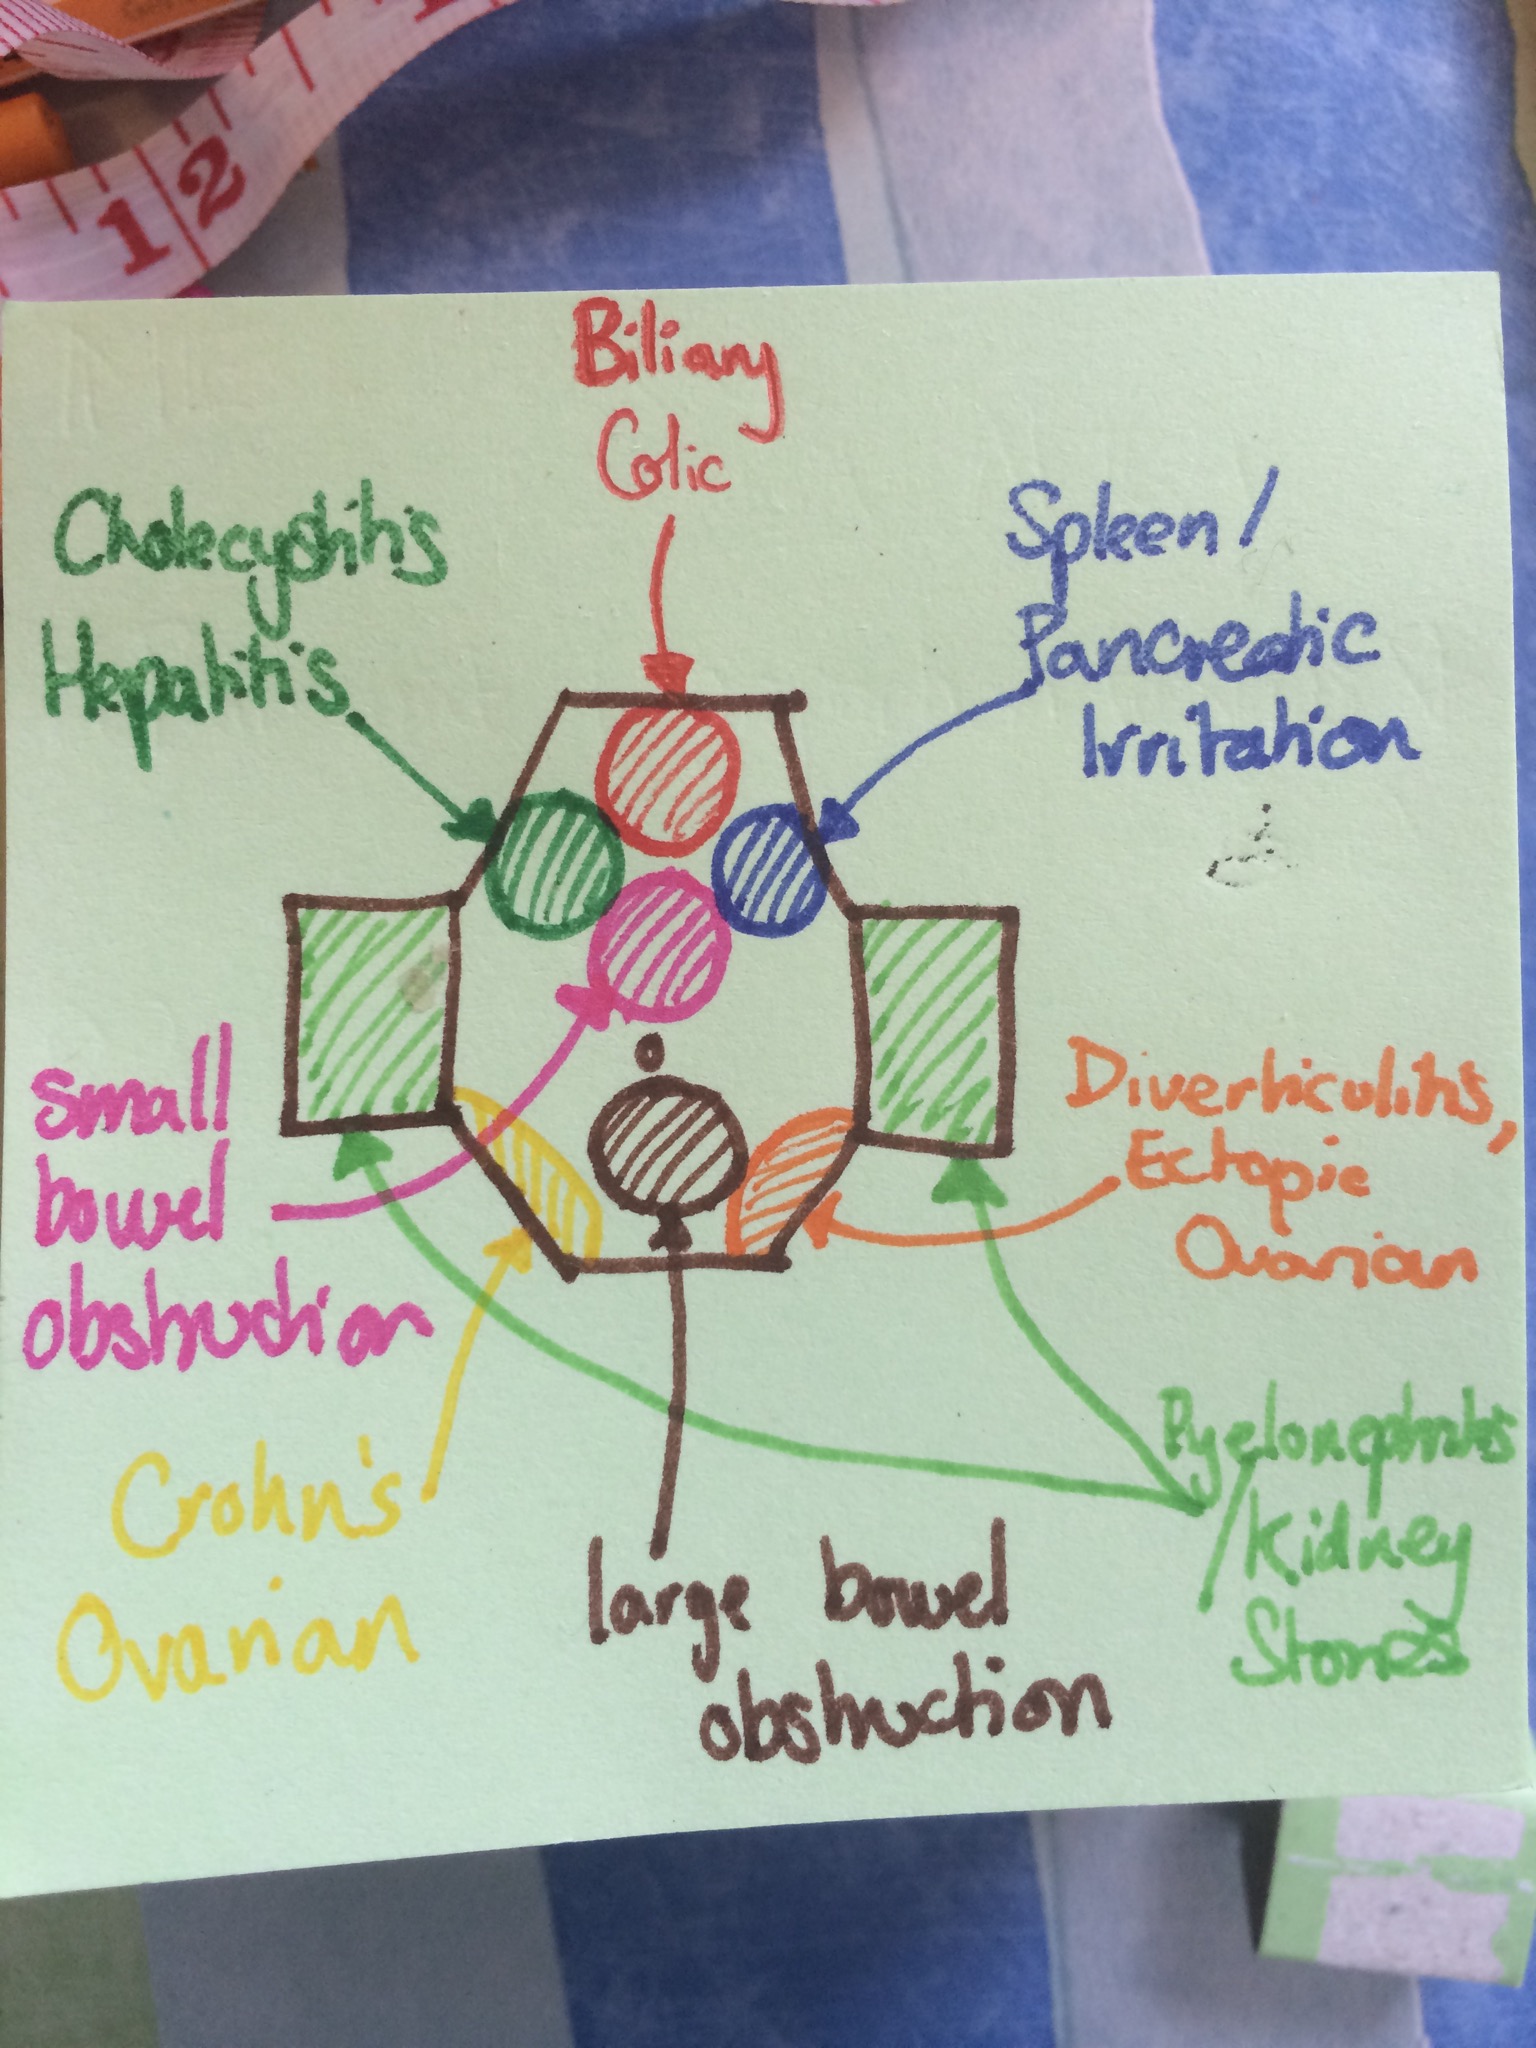 12
Biliary
Colic
Cholecystitis
Hepatitis
Spleen/
Pancreatic
Irritation
small
bowel
obstruction
Diverticulitis,
Ectopic
Ovarian
Crohn's
Ovarian
large bowel
obstruction
Pyelonephritis
/Kidney
Stones